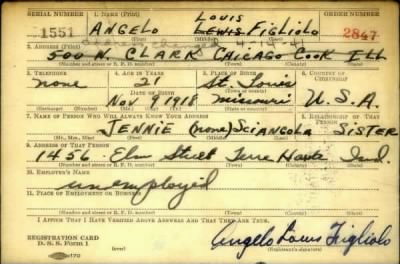 SERIAL NUMBER 1. NAME (Print) ORDER NUMBER
LOUIS
1551 ANGELO LEWIS FIGLIOLO 2847
(First) (Middle) (Last)
2. ADDRESS (Print)
500 N. CLARK CHICAGO COOK ILL
(Number and street or R. F. D. number) (Town) (County) (State)
3. TELEPHONE 4. AGE IN YEARS 5. PLACE OF BIRTH 6. COUNTRY OF CITIZENSHIP
none 21 St. Louis
DATE OF BIRTH (Town or county)
Nov 9 1918 Missouri U.S.A.
(Exchange) (Number) (Mo.) (Day) (Yr.) (State or country)
7. NAME OF PERSON WHO WILL ALWAYS KNOW YOUR ADDRESS 8. RELATIONSHIP OF THAT PERSON
JENNIE (none) SCIANGOLA SISTER
(Mr., Mrs., Miss) (First) (Middle) (Last)
9. ADDRESS OF THAT PERSON
1456 Elm Street Terre Haute Ind.
(Number and street or R. F. D. number) (Town) (County) (State)
10. EMPLOYER'S NAME
unemployed
11. PLACE OF EMPLOYMENT OR BUSINESS
(Number and street or R. F. D. number) (Town) (County) (State)
I AFFIRM THAT I HAVE VERIFIED ABOVE ANSWERS AND THAT THEY ARE TRUE.
REGISTRATION CARD
D. S. S. Form 1 Angelo Louis Figliolo
(Registrant's signature)